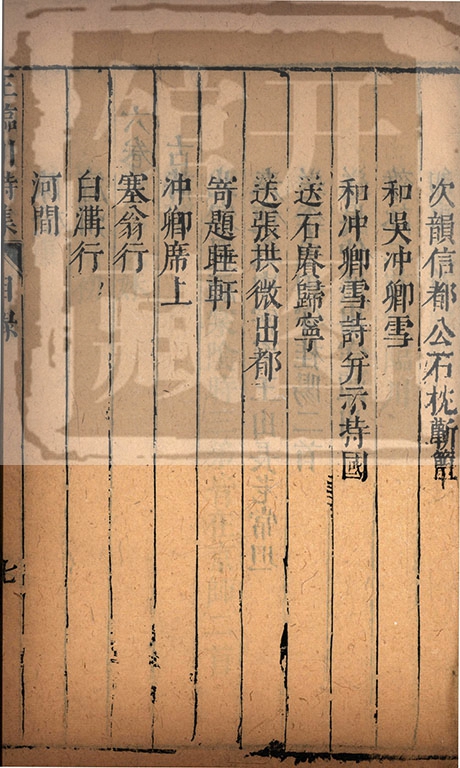 次韻信都公石枕蘄簟
和吳冲卿雪
和冲卿雪詩并示持國
送石賡歸寧
送張拱微出都
寄題睡軒
冲卿席上
塞翁行
白溝行
河間
王臨川詩集 目錄 七